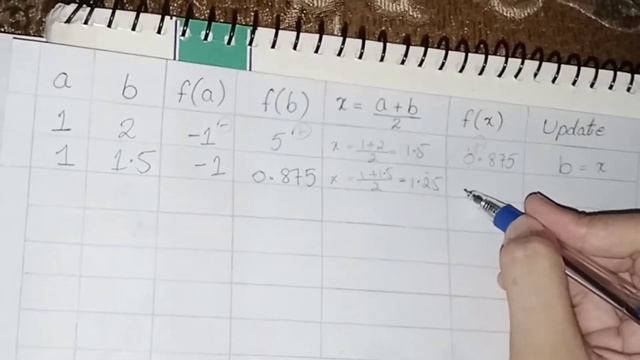 a b f(a) f(b) x = a+b/2 f(x) Update
1 2 -1(-) 5(+) x = 1+2/2 = 1.5 0.875 b = x
1 1.5 -1 0.875 x = 1+1.5/2 = 1.25